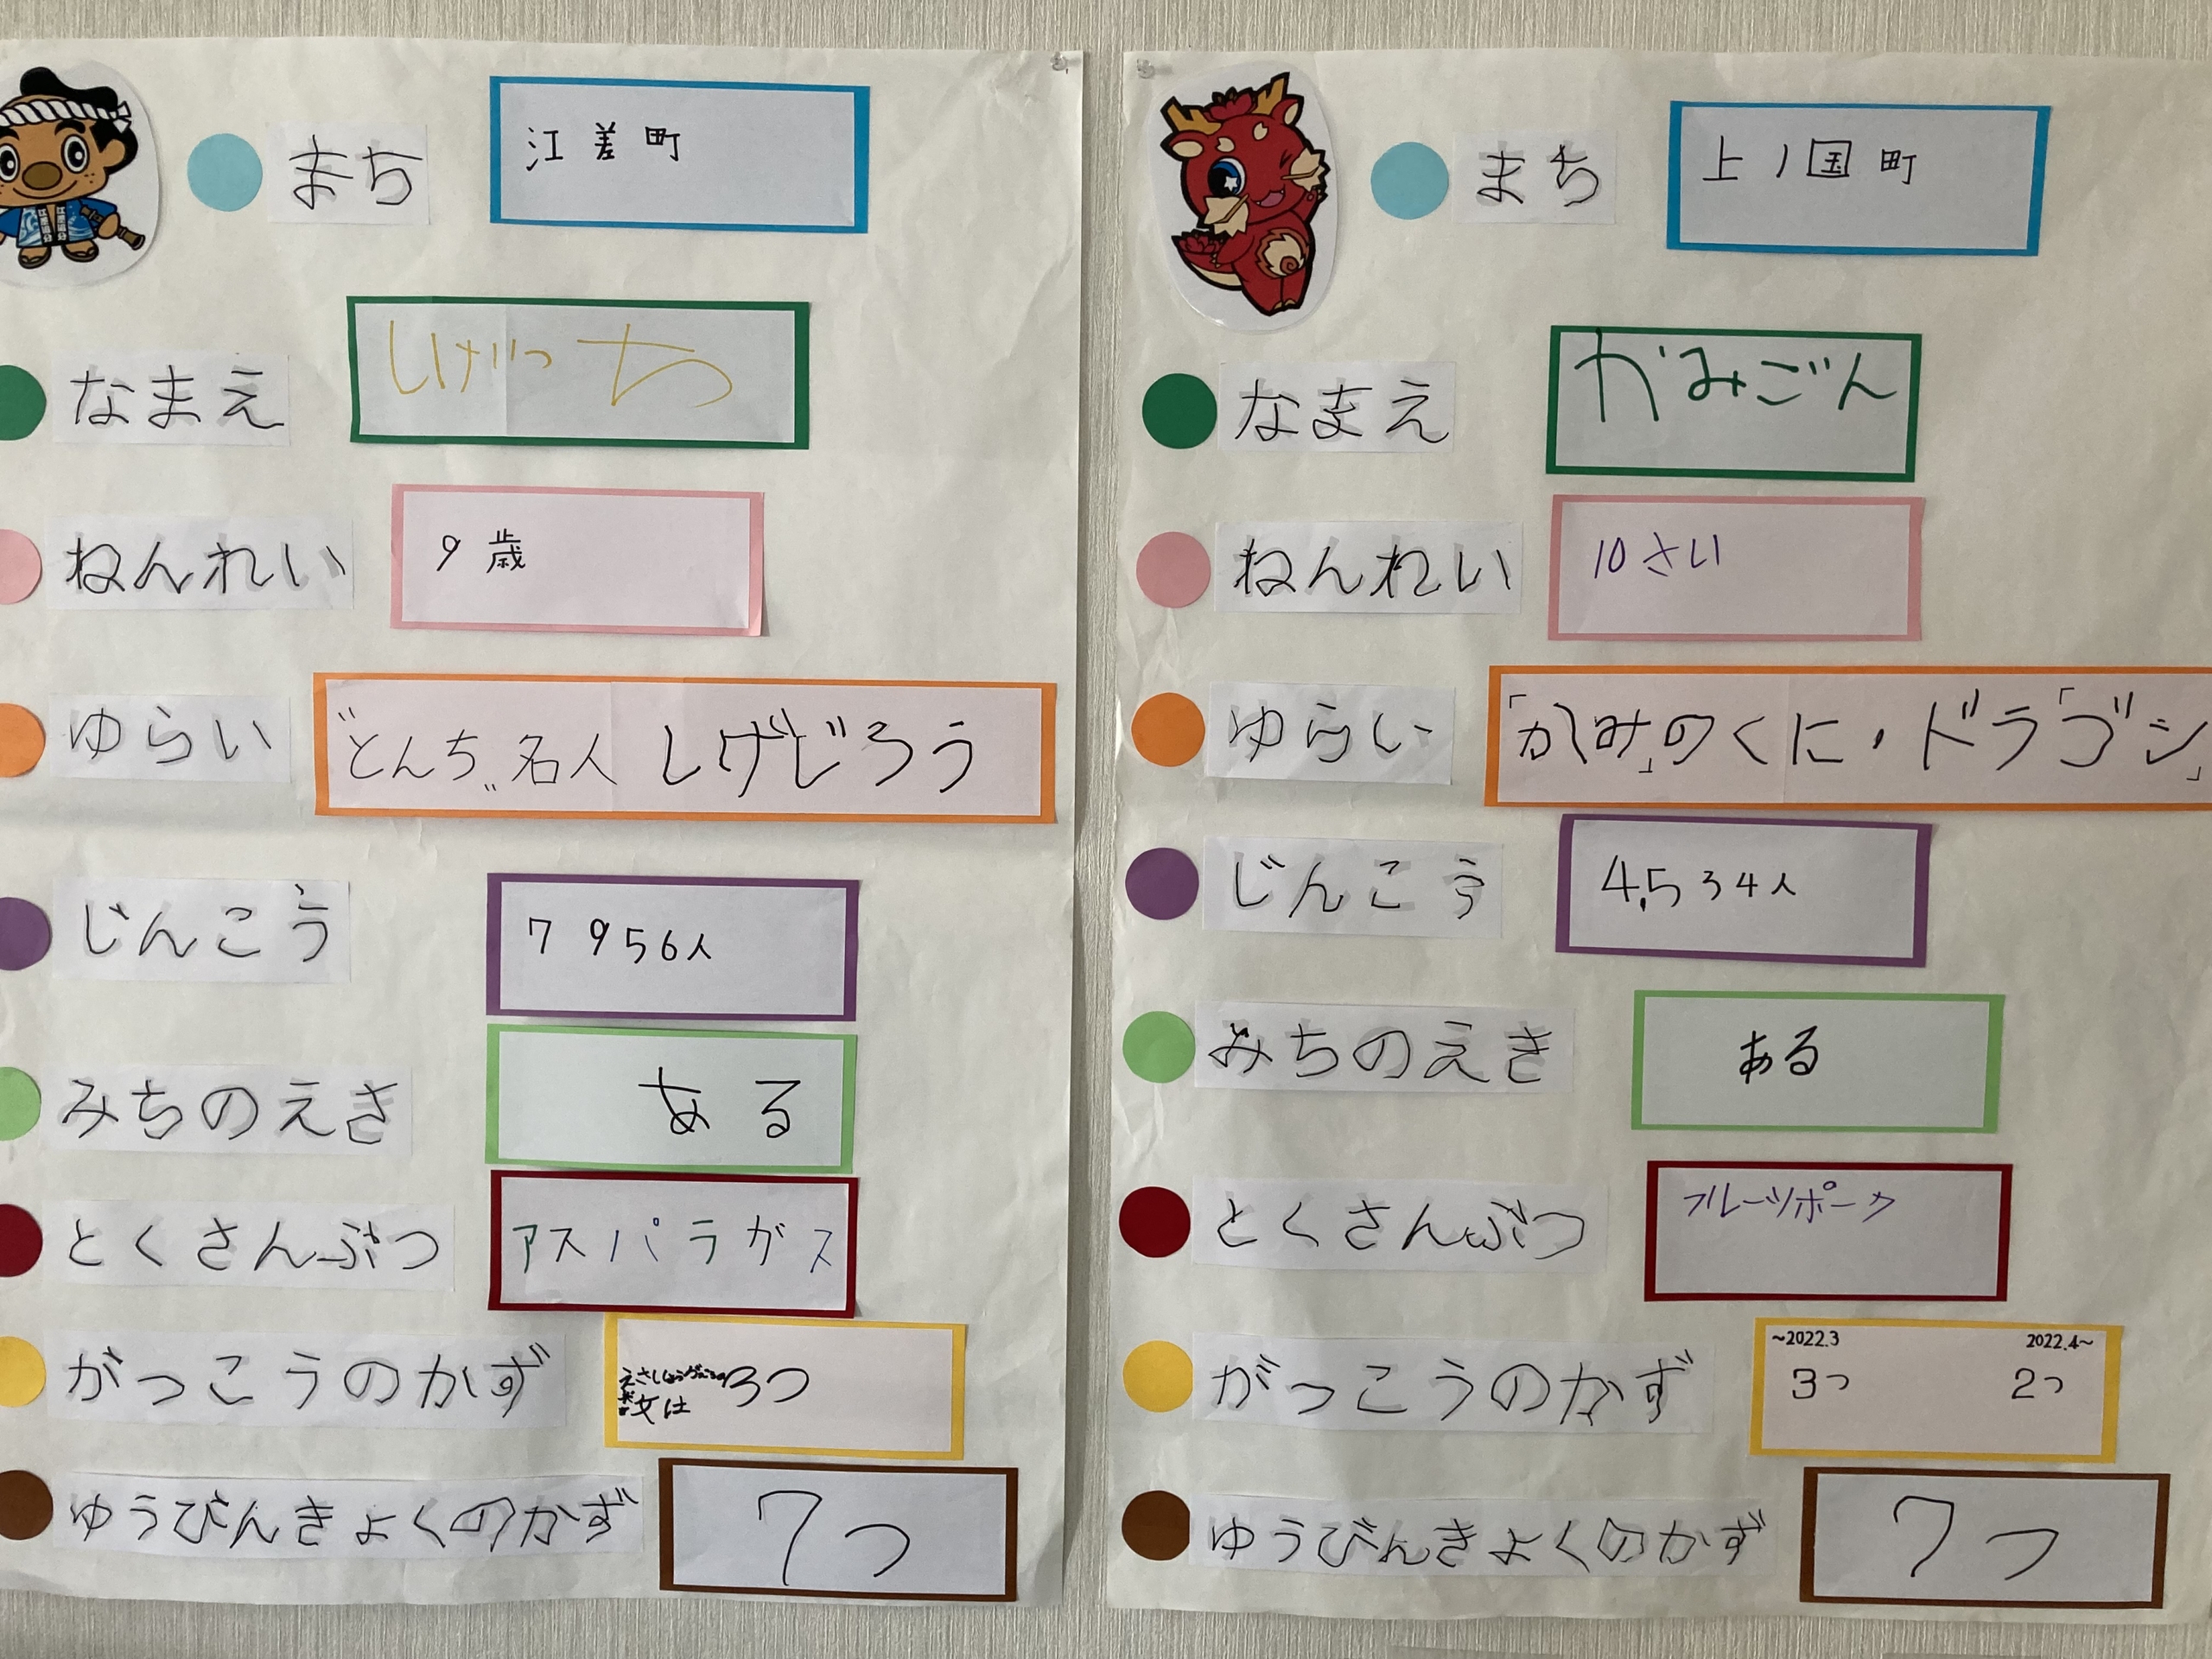 まち 江差町
なまえ しげっち
ねんれい 9歳
ゆらい "とんち"名人しげじろう
じんこう 7956人
みちのえき ある
とくさんぶつ アスパラガス
がっこうのかず 3つ
数は
ゆうびんきょくのかず 7つ
まち 上ノ国町
なまえ かみごん
ねんれい 10さい
ゆらい 「かみ」のくに・ドラ「ゴン」
じんこう 4,534人
みちのえき ある
とくさんぶつ フルーツポーク
がっこうのかず ~2022.3 2022.4~
3つ 2つ
ゆうびんきょくのかず 7つ